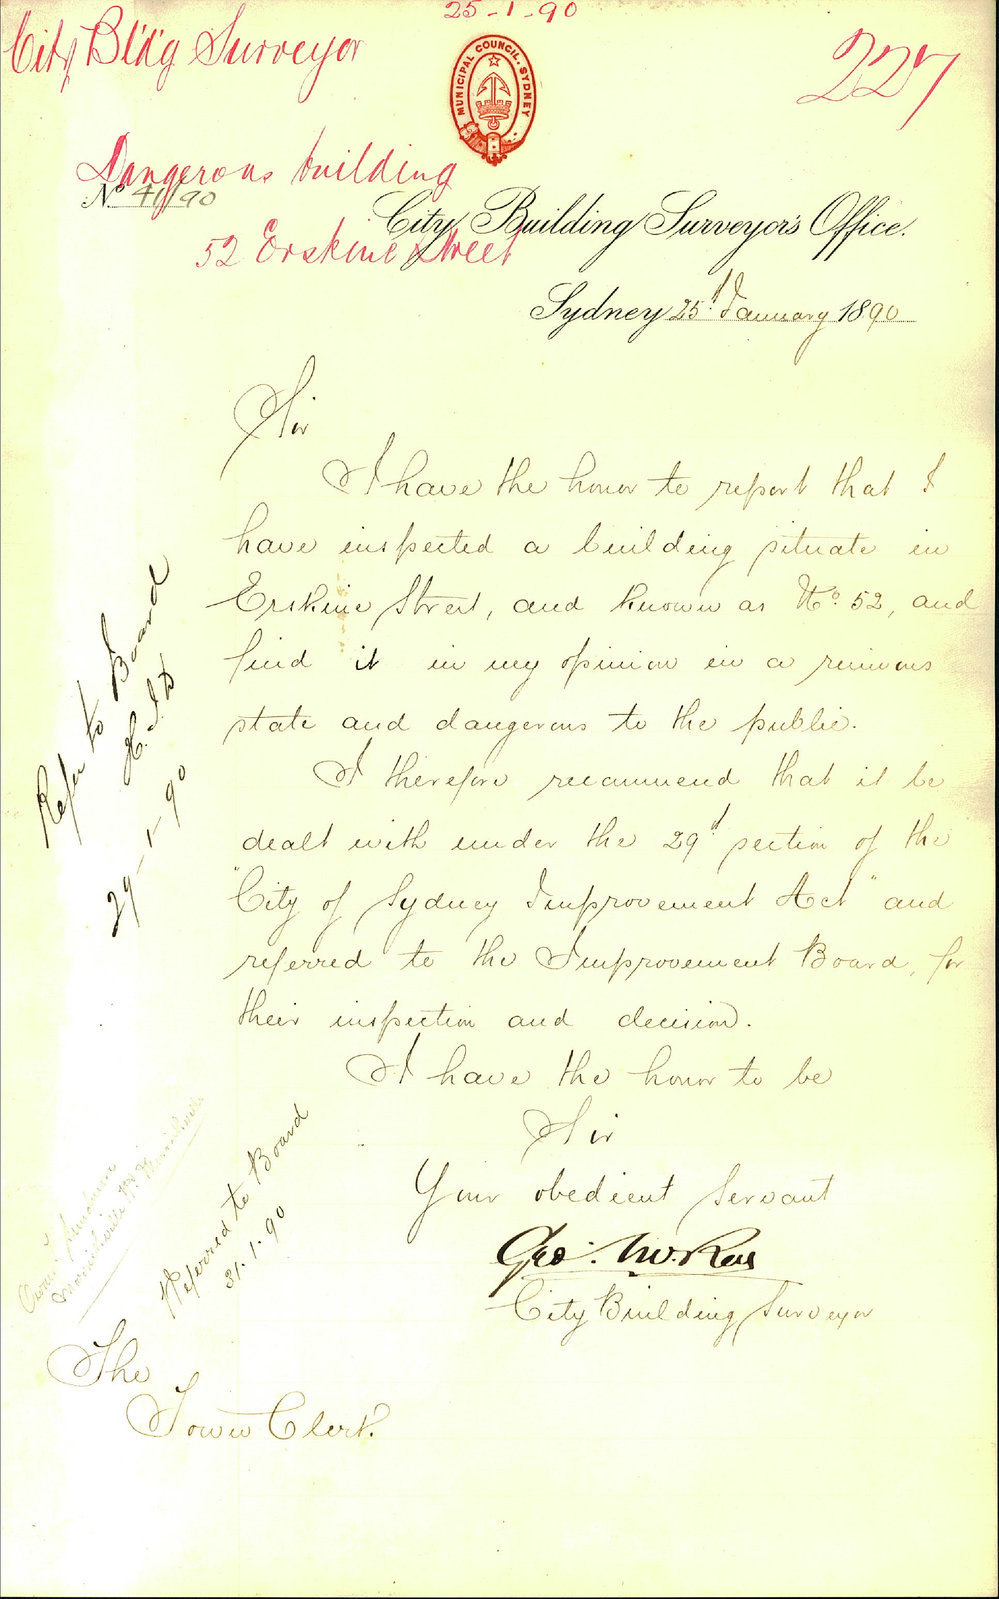 25-1-90
City Bldg Surveyor
227
MUNICIPAL COUNCIL. SYDNEY
Dangerous building
No 41/90
City Building Surveyor's Office.
52 Erskine Street
Sydney 25th January 1890
Sir
I have the honor to report that I
have inspected a building situate in
Erskine Street, and known as No. 52, and
find it in my opinion in a ruinous
state and dangerous to the public.
I therefore recommend that it be
dealt with under the 29th section of the
"City of Sydney Improvement Act" and
referred to the Improvement Board, for
their inspection and decision.
I have the honor to be
Sir
Your obedient Servant
Geo: McRae
City Building Surveyor
The
Town Clerk.
Refer to Board
29-1-90
Referred to Board
31.1.90
Owner
Marrickville Rd Marrickville